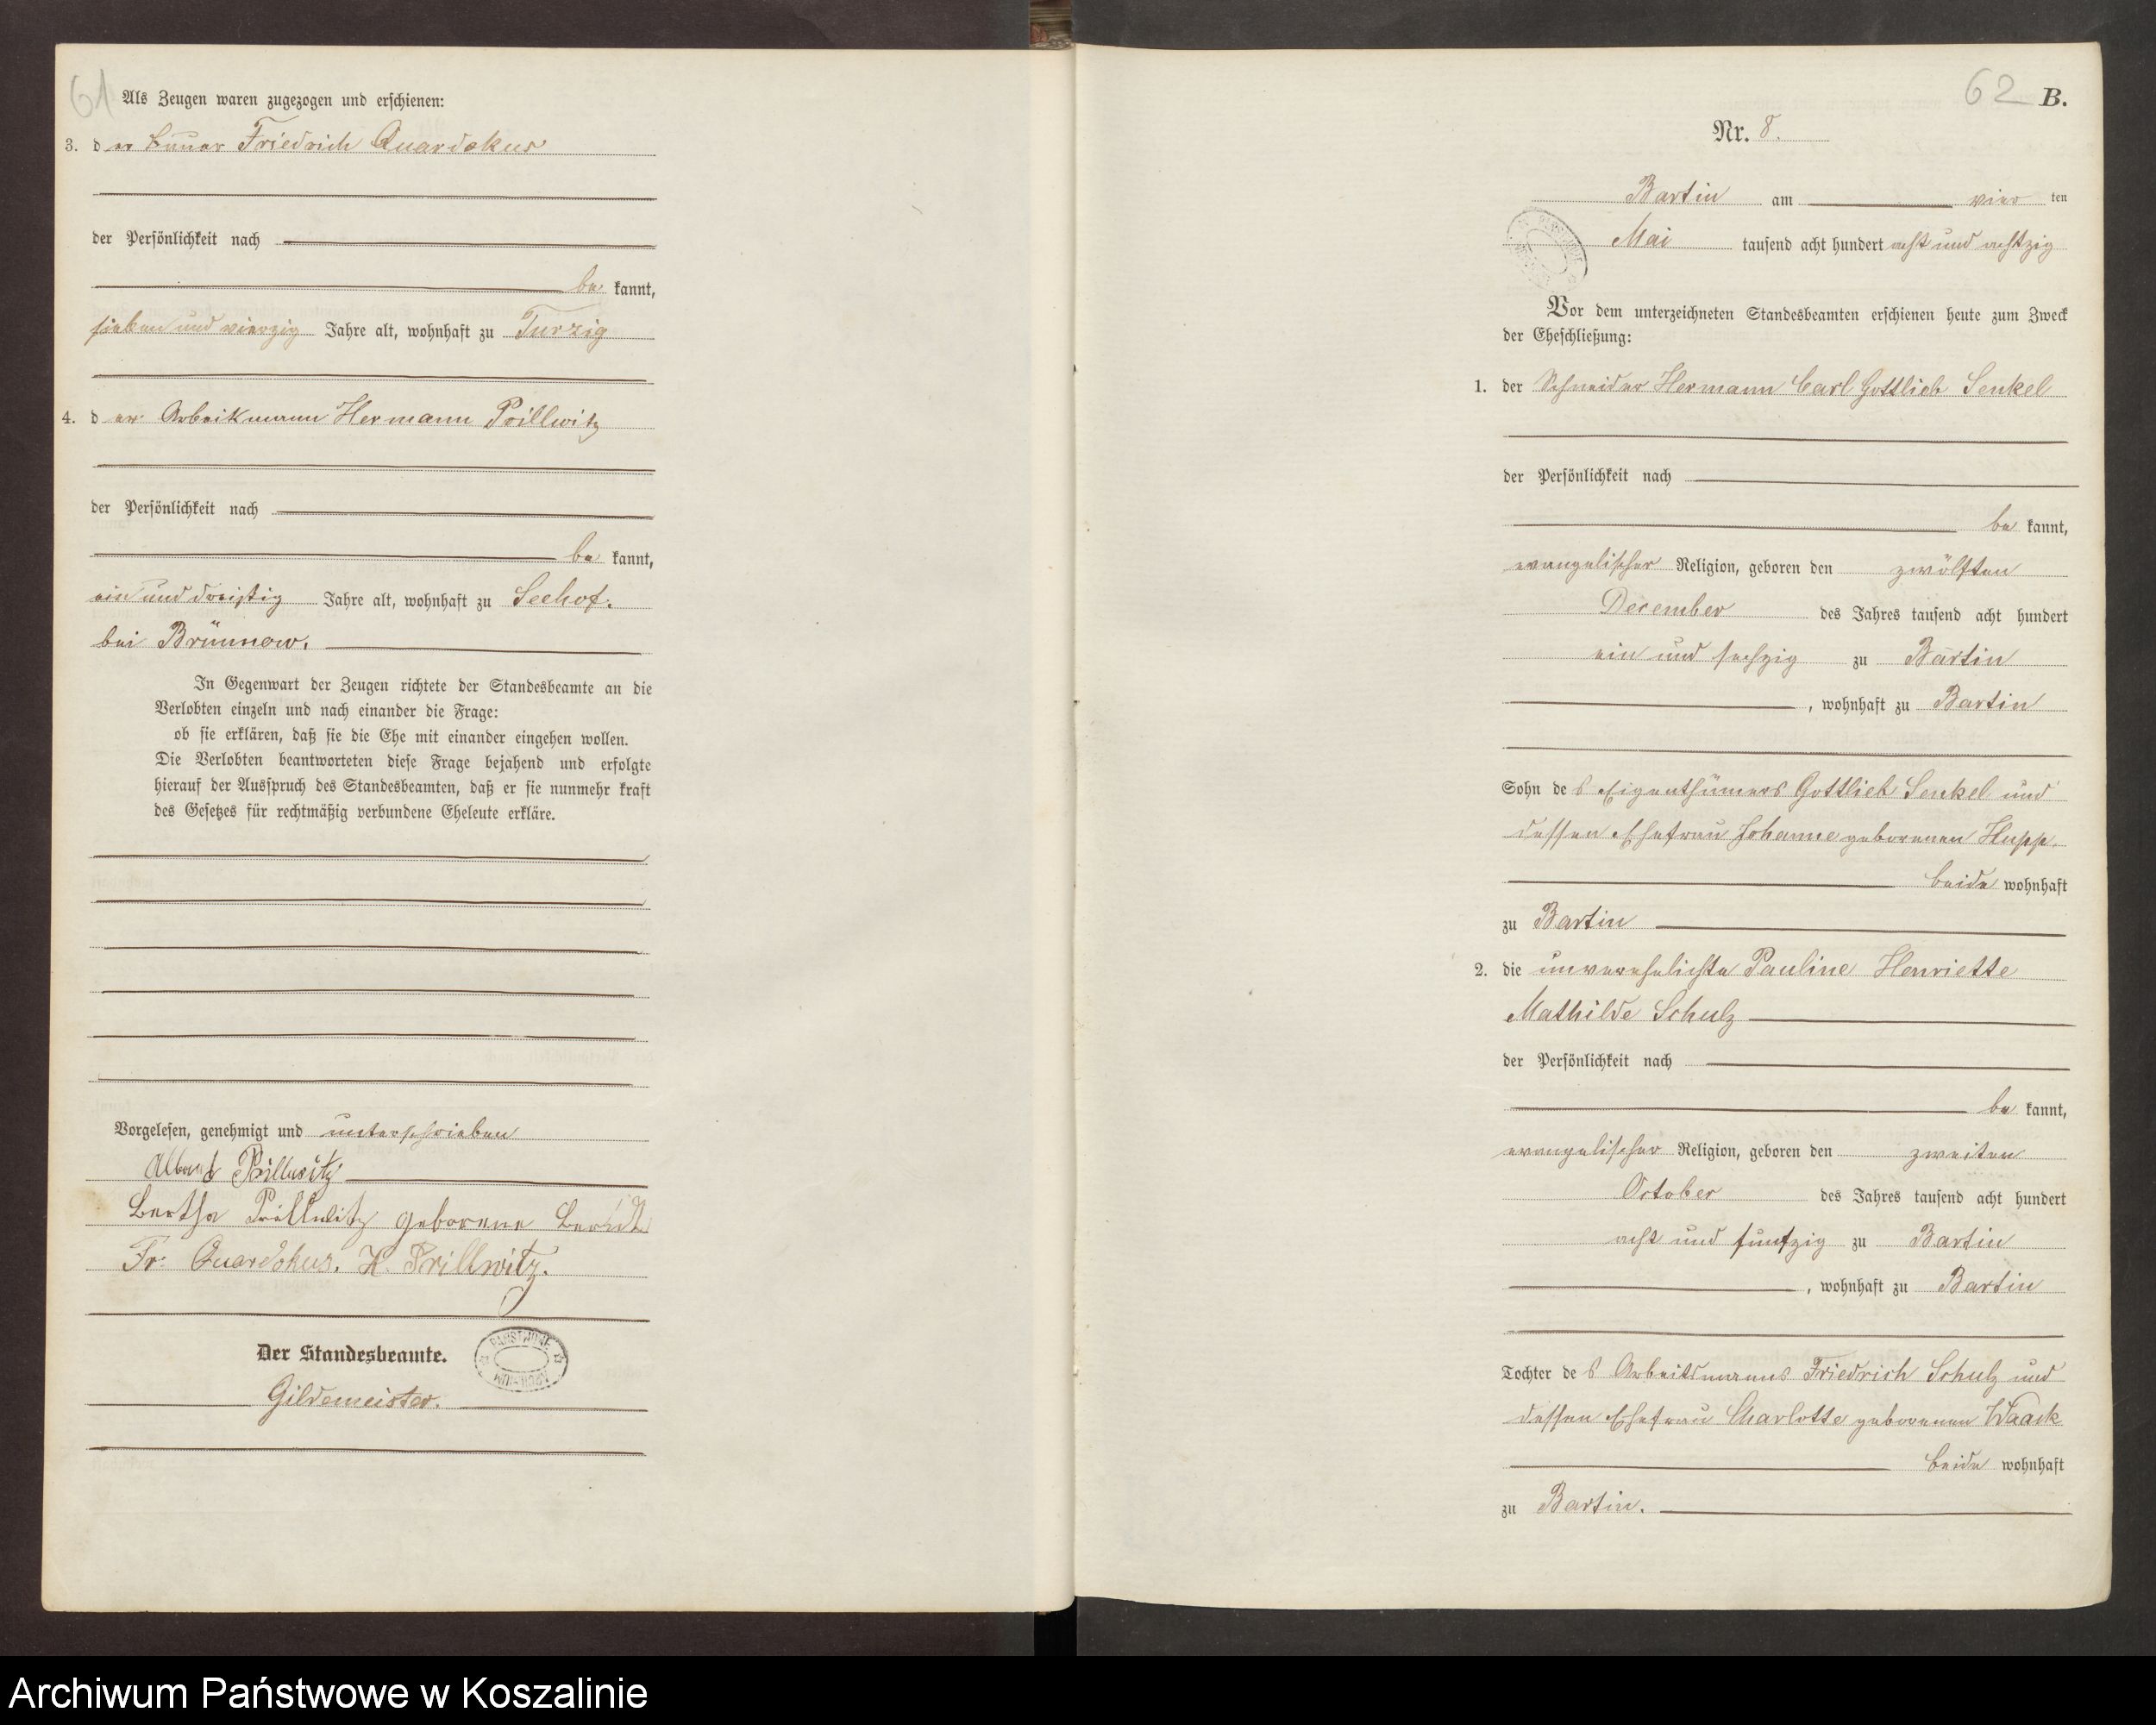 61
Als Zeugen waren zugezogen und erschienen:
3. der Bauer Friedrich Quardokus
der Persönlichkeit nach
be kannt,
sieben und vierzig Jahre alt, wohnhaft zu Turzig
4. der Arbeitsmann Hermann Prillwitz
der Persönlichkeit nach
be kannt,
ein und dreißig Jahre alt, wohnhaft zu Seehof.
bei Brünnow.
In Gegenwart der Zeugen richtete der Standesbeamte an die
Verlobten einzeln und nach einander die Frage:
ob sie erklären, daß sie die Ehe mit einander eingehen wollen.
Die Verlobten beantworteten diese Frage bejahend und erfolgte
hierauf der Ausspruch des Standesbeamten, daß er sie nunmehr kraft
des Gesetzes für rechtmäßig verbundene Eheleute erkläre.
Vorgelesen, genehmigt und unterschrieben
Albert Prillwitz
Bertha Prillwitz geborene Berndt
Fr. Quardokus. H. Prillwitz.
Der Standesbeamte.
Gildemeister.
62 B.
Nr. 8.
Bartin am vier ten
Mai tausend acht hundert acht und achtzig
Vor dem unterzeichneten Standesbeamten erschienen heute zum Zweck
der Eheschließung:
1. der Schneider Hermann Carl Gottlieb Senkel
der Persönlichkeit nach
be kannt,
evangelischer Religion, geboren den zwölften
December des Jahres tausend acht hundert
ein und sechzig zu Bartin
, wohnhaft zu Bartin
Sohn des Eigenthümers Gottlieb Senkel und
dessen Ehefrau Johanne geborenen Hupp.
beide wohnhaft
zu Bartin
2. die unverehelichte Pauline Henriette
Mathilde Schulz
der Persönlichkeit nach
be kannt,
evangelischer Religion, geboren den zweiten
October des Jahres tausend acht hundert
acht und funfzig zu Bartin
, wohnhaft zu Bartin
Tochter des Arbeitsmanns Friedrich Schulz und
dessen Ehefrau Charlotte geborenen Waack
beide wohnhaft
zu Bartin.
Archiwum Państwowe w Koszalinie